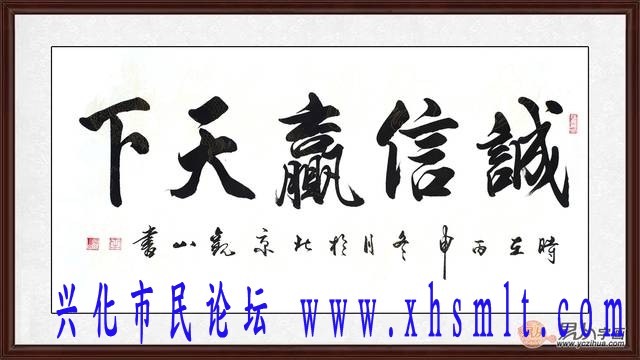 誠信贏天下
時在丙申冬月於北京觀山書
兴化市民论坛 www.xhsmlt.com
易从字画
www.yczihua.com